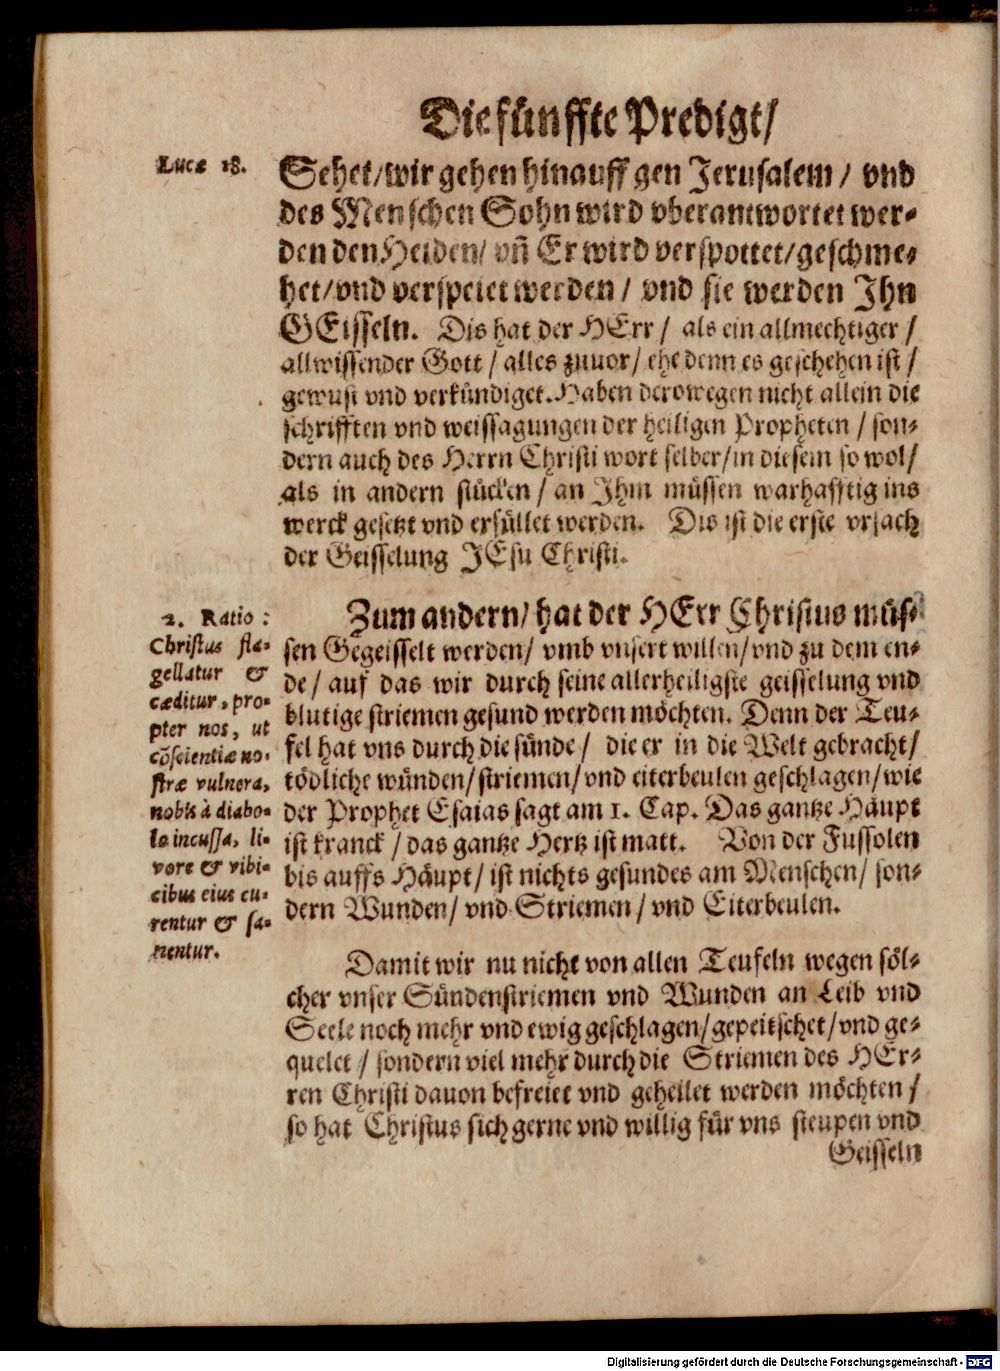 Die fünffte Predigt/
Lucæ 18.
Sehet/wir gehen hinauff gen Jerusalem / vnd
des Menschen Sohn wird vberantwortet wer-
den den Heiden/ vn̄ Er wird verspottet/geschme-
het/vnd verspeiet werden / vnd sie werden Ihn
GEisseln. Dis hat der HErr / als ein allmechtiger /
allwissender Gott / alles zuuor/ ehe denn es geschehen ist /
gewust vnd verkündiget. Haben derowegen nicht allein die
schrifften vnd weissagungen der heiligen Propheten / son-
dern auch des Herrn Christi wort selber/in diesem so wol/
als in andern stücken / an Ihm müssen warhafftig ins
werck gesetzt vnd erfüllet werden. Dis ist die erste vrsach
der Geisselung JEsu Christi.
2. Ratio :
Christus fla-
gellatur &
cæditur, pro-
pter nos, ut
cōscientiæ no-
stræ vulnera,
nobis à diabo-
lo incussa, li-
vore & vibi-
cibus eius cu-
rentur & sa-
nentur.
Zum andern/ hat der HErr Christus müs-
sen Gegeisselt werden/ vmb vnsert willen/vnd zu dem en-
de / auf das wir durch seine allerheiligste geisselung vnd
blutige striemen gesund werden möchten. Denn der Teu-
fel hat vns durch die sünde / die er in die Welt gebracht/
tödliche wünden/striemen/vnd eiterbeulen geschlagen/wie
der Prophet Esaias sagt am 1. Cap. Das gantze Häupt
ist kranck / das gantze Hertz ist matt. Von der Fussolen
bis auffs Häupt/ ist nichts gesundes am Menschen/ son-
dern Wunden/ vnd Striemen/ vnd Eiterbeulen.
Damit wir nu nicht von allen Teufeln wegen söl-
cher vnser Sündenstriemen vnd Wunden an Leib vnd
Seele noch mehr vnd ewig geschlagen/gepeitschet/vnd ge-
quelet / sondern viel mehr durch die Striemen des HEr-
ren Christi dauon befreiet vnd geheilet werden möchten /
so hat Christus sich gerne vnd willig für vns steupen vnd
Geisseln
Digitalisierung gefördert durch die Deutsche Forschungsgemeinschaft - DFG